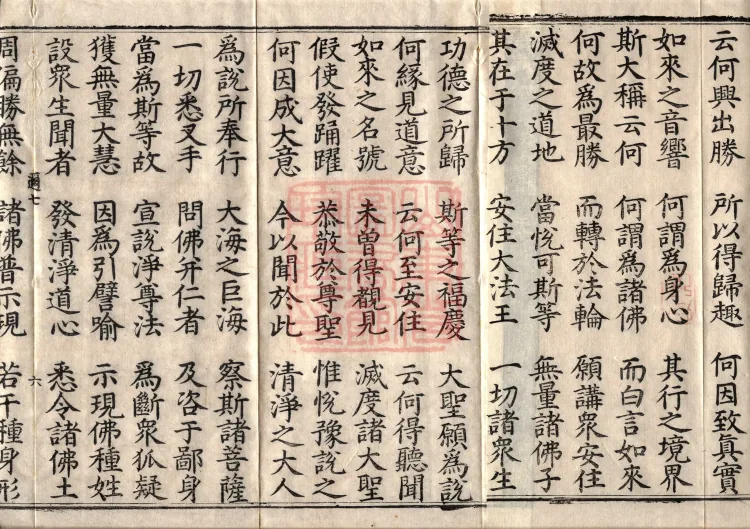 云何興出勝　所以得歸趣　何因致真實
如來之音響　何謂為身心　其行之境界
斯大稱云何　何謂為諸佛　而白言如來
何故為最勝　而轉於法輪　願講衆安住
滅度之道地　當悅可斯等　無量諸佛子
其在于十方　安住大法王　一切諸衆生
功德之所歸　斯等之福慶　大聖願為說
何緣見道意　云何至安住　云何得聽聞
如來之名號　未曾得覩見　滅度諸大聖
假使發踊躍　恭敬於尊聖　惟悅豫說之
何因成大意　今以聞於此　清淨之大人
為說所奉行　大海之巨海　察斯諸菩薩
一切悉叉手　問佛并仁者　及咨于鄙身
當為斯等故　宣說淨尊法　為斷衆狐疑
獲無量大慧　因為引譬喻　示現佛種姓
設衆生聞者　發清淨道心　悉令諸佛土
周遍勝無餘　諸佛普示現　若干種身形
七　六